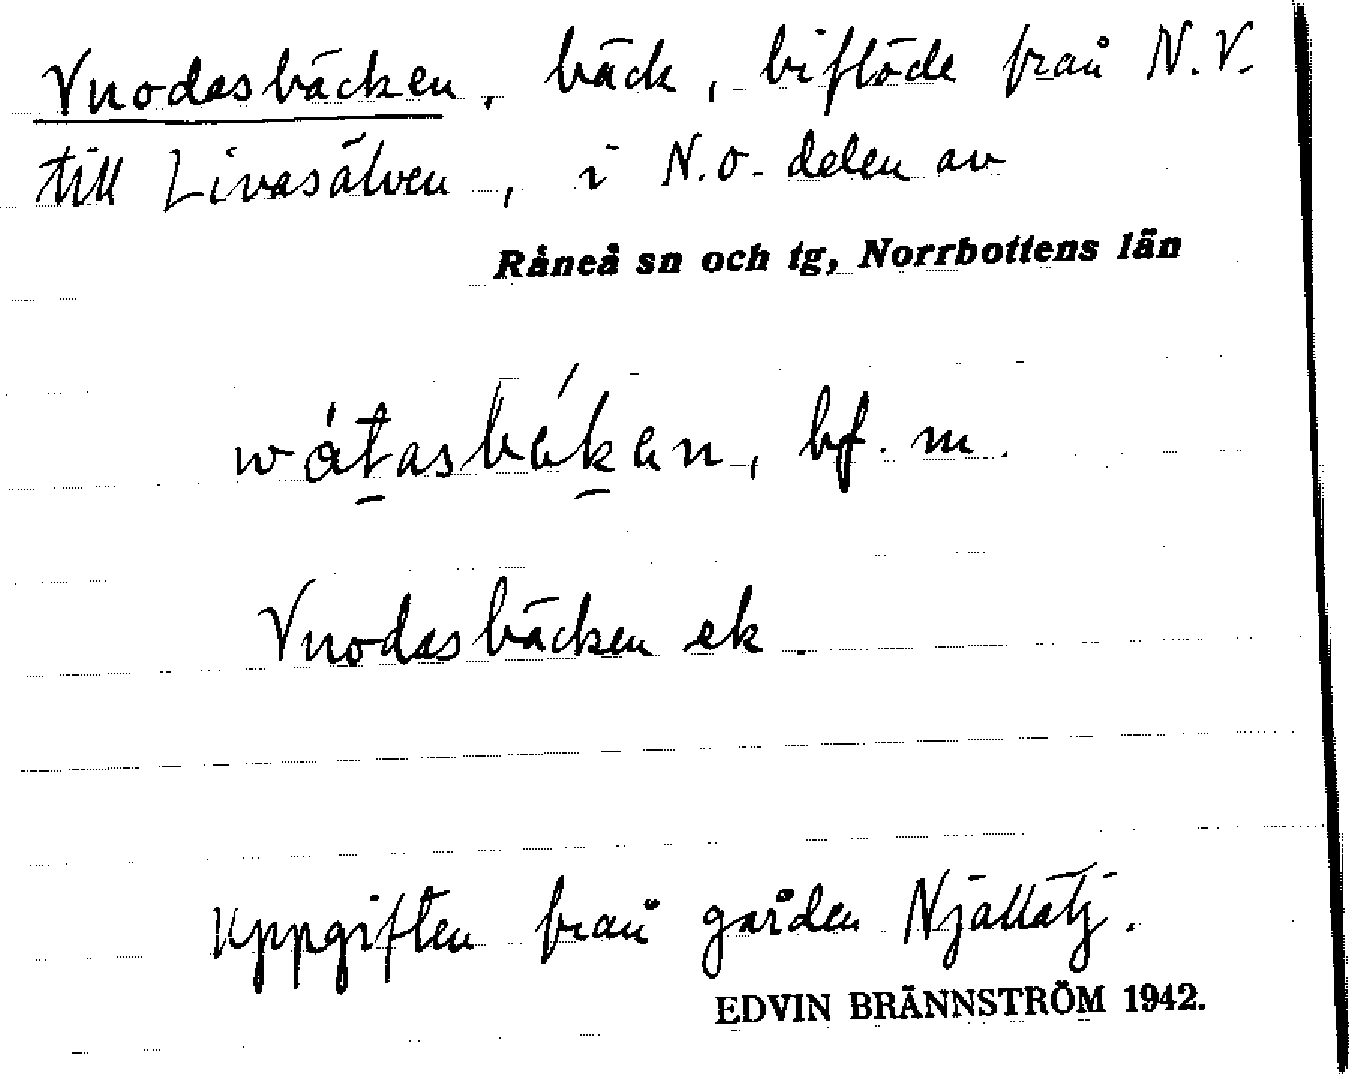 Vuodasbäcken, bäck, biflöde från N.V.
till Livasälven, i N.O. delen av
Råneå sn och tg, Norrbottens län
bf. m.
Vuodasbäcken ek.
Uppgiften från gården Njallatj.
EDVIN BRÄNNSTRÖM 1942.